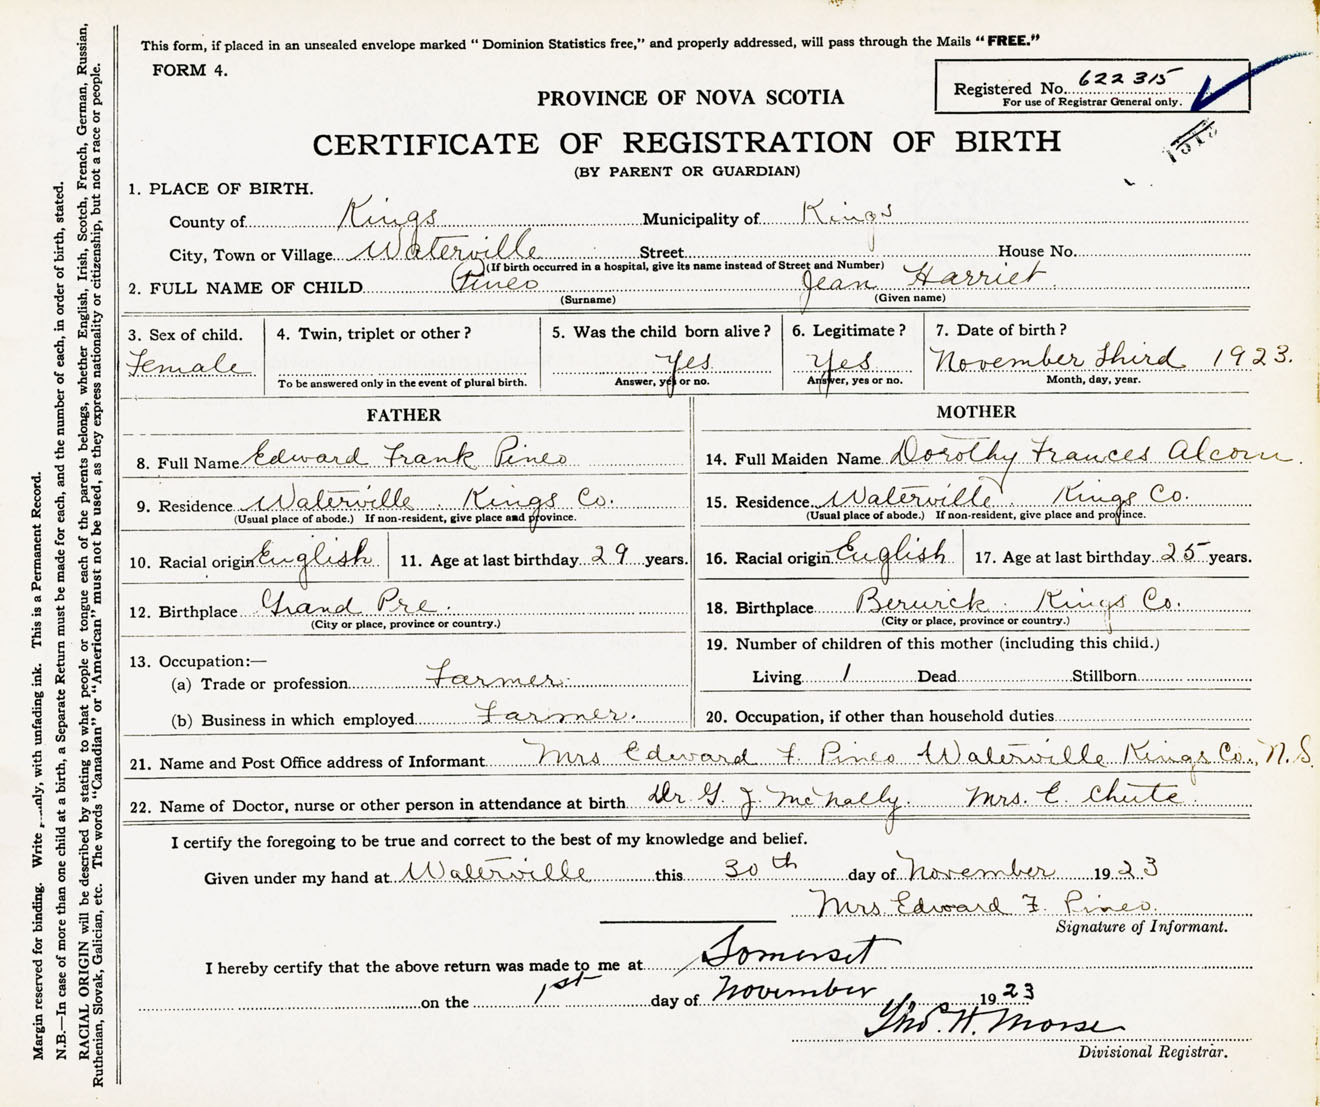 This form, if placed in an unsealed envelope marked " Dominion Statistics free," and properly addressed, will pass through the Mails "FREE."
FORM 4.
Registered No. 622315
For use of Registrar General only.
PROVINCE OF NOVA SCOTIA
CERTIFICATE OF REGISTRATION OF BIRTH
(BY PARENT OR GUARDIAN)
1. PLACE OF BIRTH.
County of Kings Municipality of Kings
City, Town or Village Waterville Street House No.
(If birth occurred in a hospital, give its name instead of Street and Number)
2. FULL NAME OF CHILD Pineo Jean Harriet
(Surname) (Given name)
3. Sex of child. 4. Twin, triplet or other? 5. Was the child born alive? 6. Legitimate? 7. Date of birth?
Female Yes Yes November Third 1923.
To be answered only in the event of plural birth. Answer, yes or no. Answer, yes or no. Month, day, year.
FATHER MOTHER
8. Full Name Edward Frank Pineo 14. Full Maiden Name Dorothy Frances Alcorn.
9. Residence Waterville Kings Co. 15. Residence Waterville Kings Co.
(Usual place of abode.) If non-resident, give place and province. (Usual place of abode.) If non-resident, give place and province.
10. Racial origin English 11. Age at last birthday 29 years. 16. Racial origin English 17. Age at last birthday 25 years.
12. Birthplace Grand Pre. 18. Birthplace Berwick Kings Co.
(City or place, province or country.) (City or place, province or country.)
19. Number of children of this mother (including this child.)
13. Occupation:—
(a) Trade or profession Farmer. Living 1 Dead Stillborn
(b) Business in which employed Farmer. 20. Occupation, if other than household duties
21. Name and Post Office address of Informant Mrs Edward F. Pineo Waterville Kings Co., N.S.
22. Name of Doctor, nurse or other person in attendance at birth Dr G. J. McNally. Mrs. E. Chute.
I certify the foregoing to be true and correct to the best of my knowledge and belief.
Given under my hand at Waterville this 30th day of November 1923
Mrs. Edward F. Pineo.
Signature of Informant.
I hereby certify that the above return was made to me at Somerset
on the 1st day of November 1923
Thos. H. Morse
Divisional Registrar.
Margin reserved for binding. Write nly, with unfading ink. This is a Permanent Record.
N.B.—In case of more than one child at a birth, a Separate Return must be made for each, and the number of each, in order of birth, stated.
RACIAL ORIGIN will be described by stating to what people or tongue each of the parents belongs, whether English, Irish, Scotch, French, German, Russian,
Ruthenian, Slovak, Galician, etc. The words "Canadian" or "American" must not be used, as they express nationality or citizenship, but not a race or people.